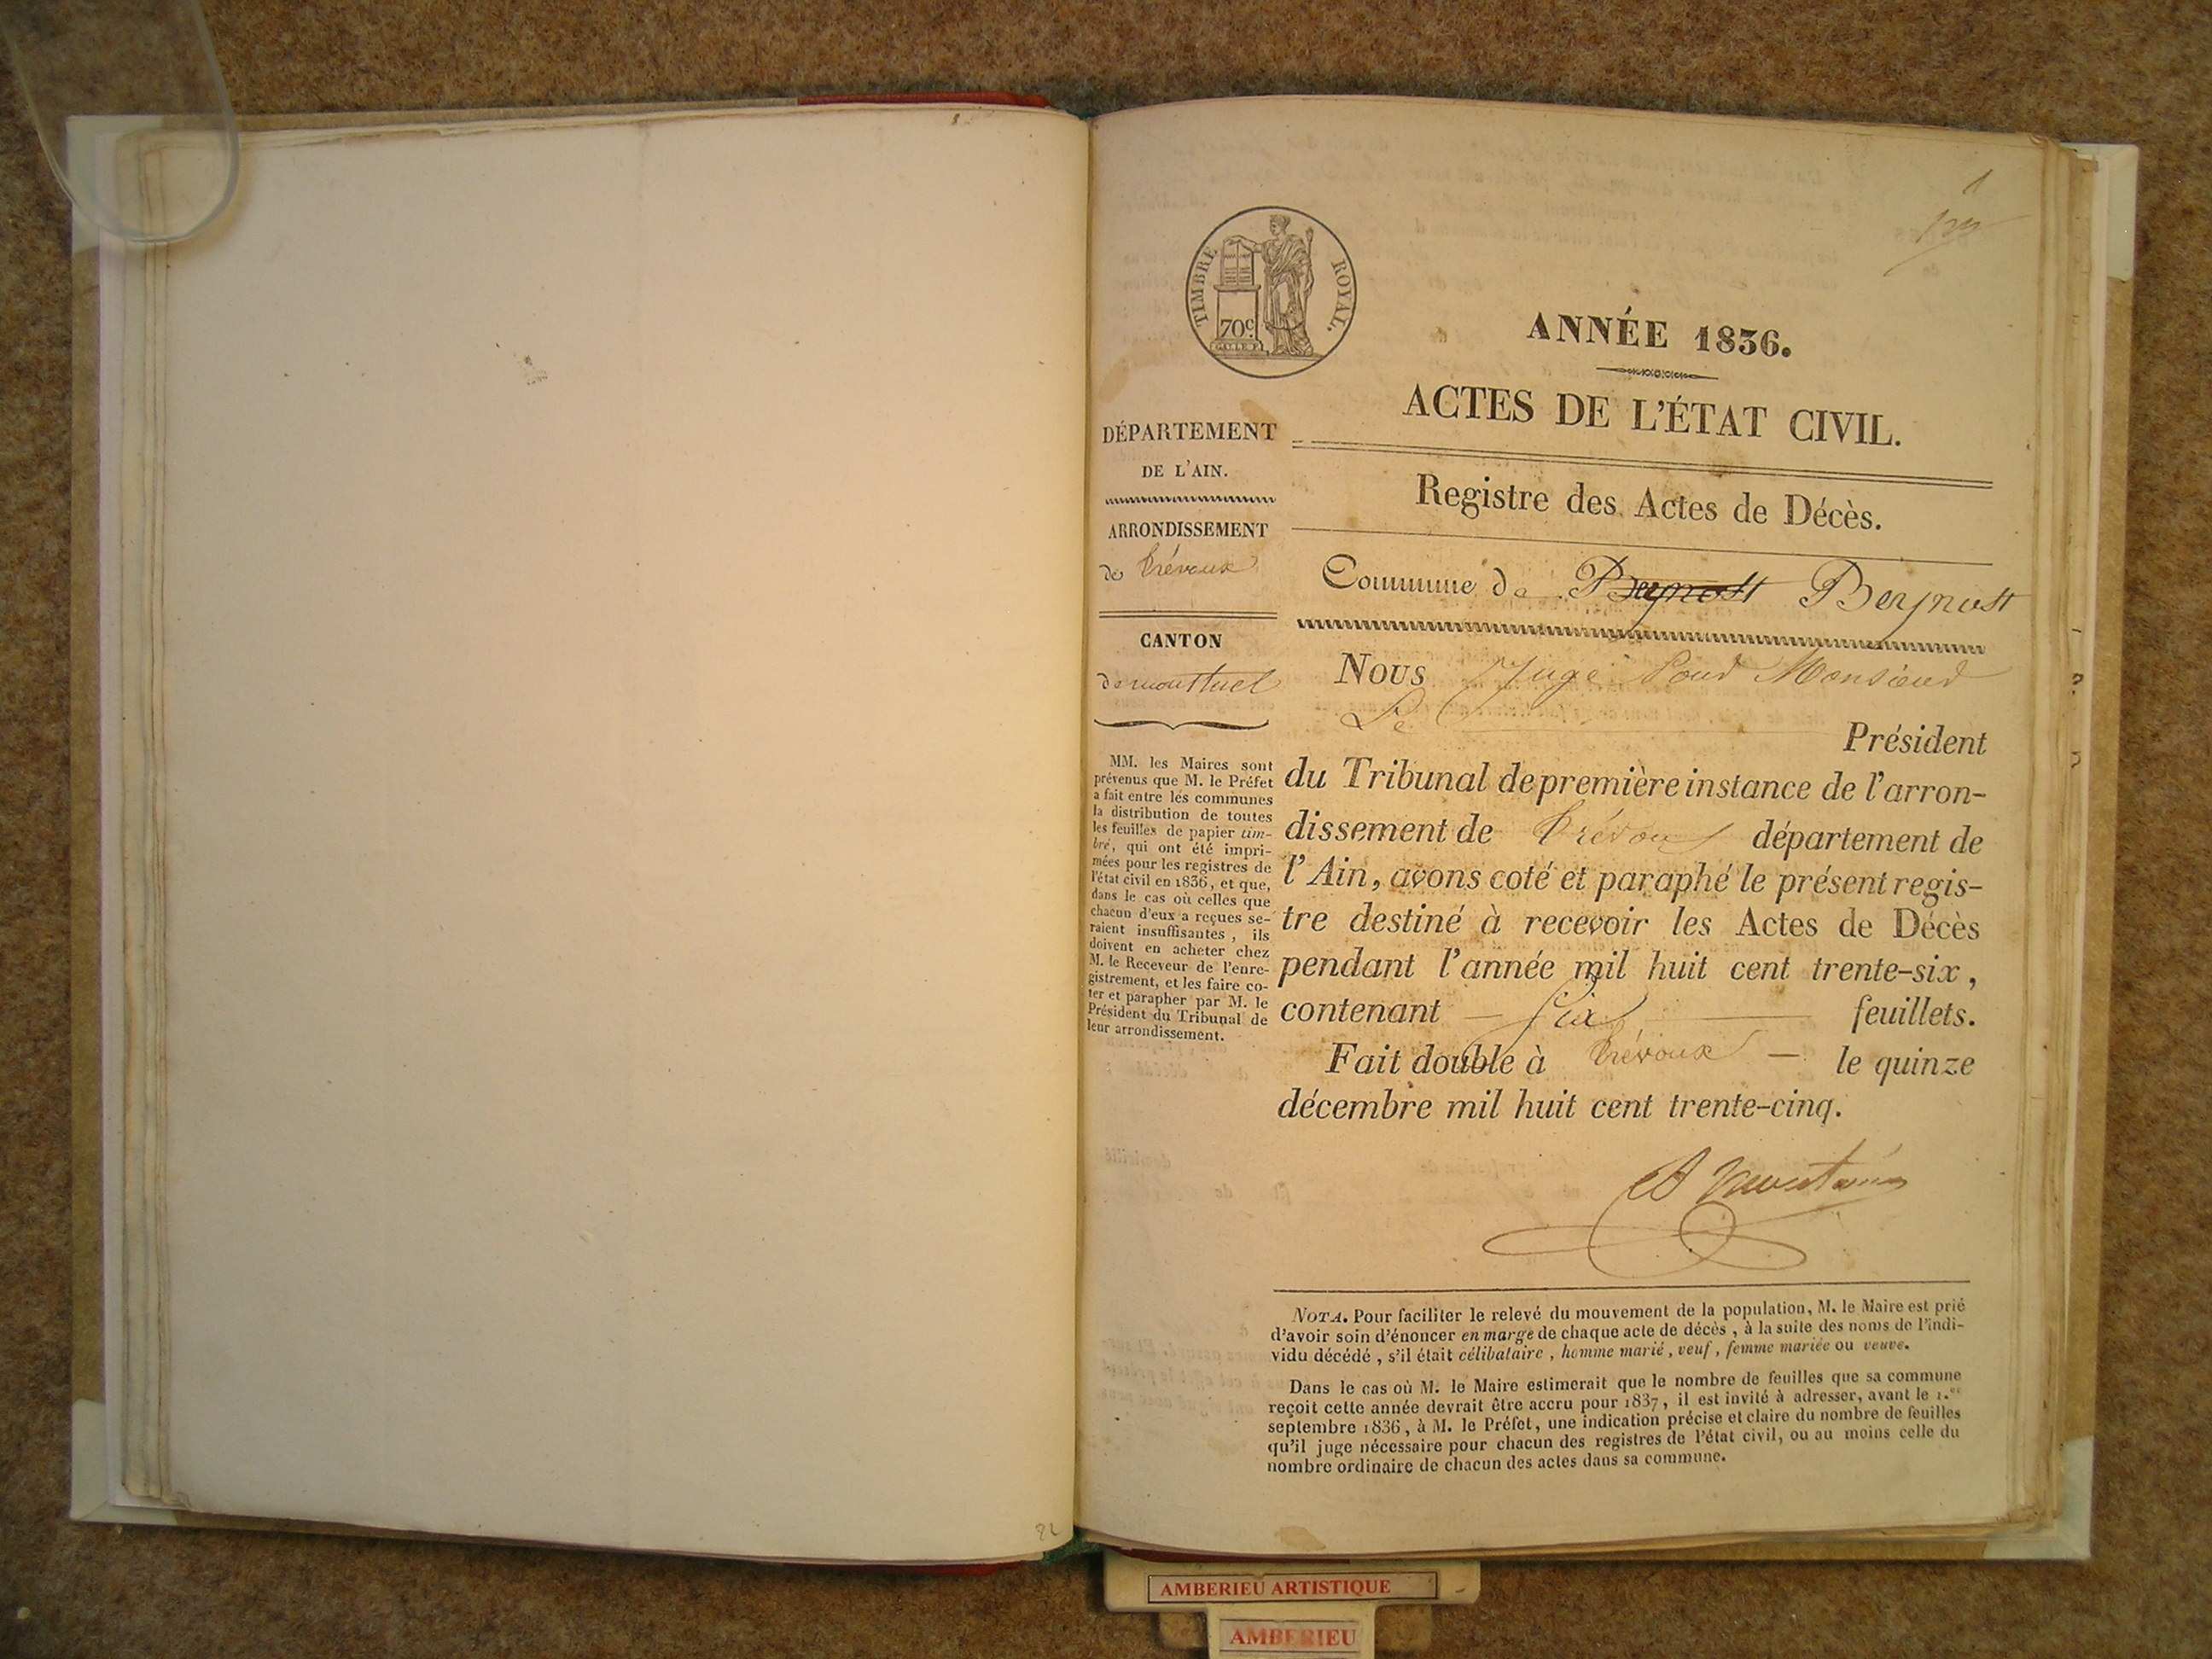 1
TIMBRE ROYAL.
70c
ANNÉE 1836.
ACTES DE L'ÉTAT CIVIL.
DÉPARTEMENT
DE L'AIN.
ARRONDISSEMENT
de Trévoux
CANTON
de montluel
MM. les Maires sont
prévenus que M. le Préfet
a fait entre les communes
la distribution de toutes
les feuilles de papier tim-
bré, qui ont été impri-
mées pour les registres de
l'état civil en 1836, et que,
dans le cas où celles que
chacun d'eux a reçues se-
raient insuffisantes, ils
doivent en acheter chez
M. le Receveur de l'enre-
gistrement, et les faire co-
ter et parapher par M. le
Président du Tribunal de
leur arrondissement.
Registre des Actes de Décès.
Commune de Beynost Beynost
Nous Juge Pour Monsieur
Le
Président
du Tribunal de première instance de l'arron-
dissement de Trévoux département de
l'Ain, avons coté et paraphé le présent regis-
tre destiné à recevoir les Actes de Décès
pendant l'année mil huit cent trente-six,
contenant — Six — feuillets.
Fait double à Trévoux — le quinze
décembre mil huit cent trente-cinq.
NOTA. Pour faciliter le relevé du mouvement de la population, M. le Maire est prié
d'avoir soin d'énoncer en marge de chaque acte de décès, à la suite des noms de l'indi-
vidu décédé, s'il était célibataire, homme marié, veuf, femme mariée ou veuve.
Dans le cas où M. le Maire estimerait que le nombre de feuilles que sa commune
reçoit cette année devrait être accru pour 1837, il est invité à adresser, avant le 1.er
septembre 1836, à M. le Préfet, une indication précise et claire du nombre de feuilles
qu'il juge nécessaire pour chacun des registres de l'état civil, ou au moins celle du
nombre ordinaire de chacun des actes dans sa commune.
AMBERIEU ARTISTIQUE
AMBERIEU